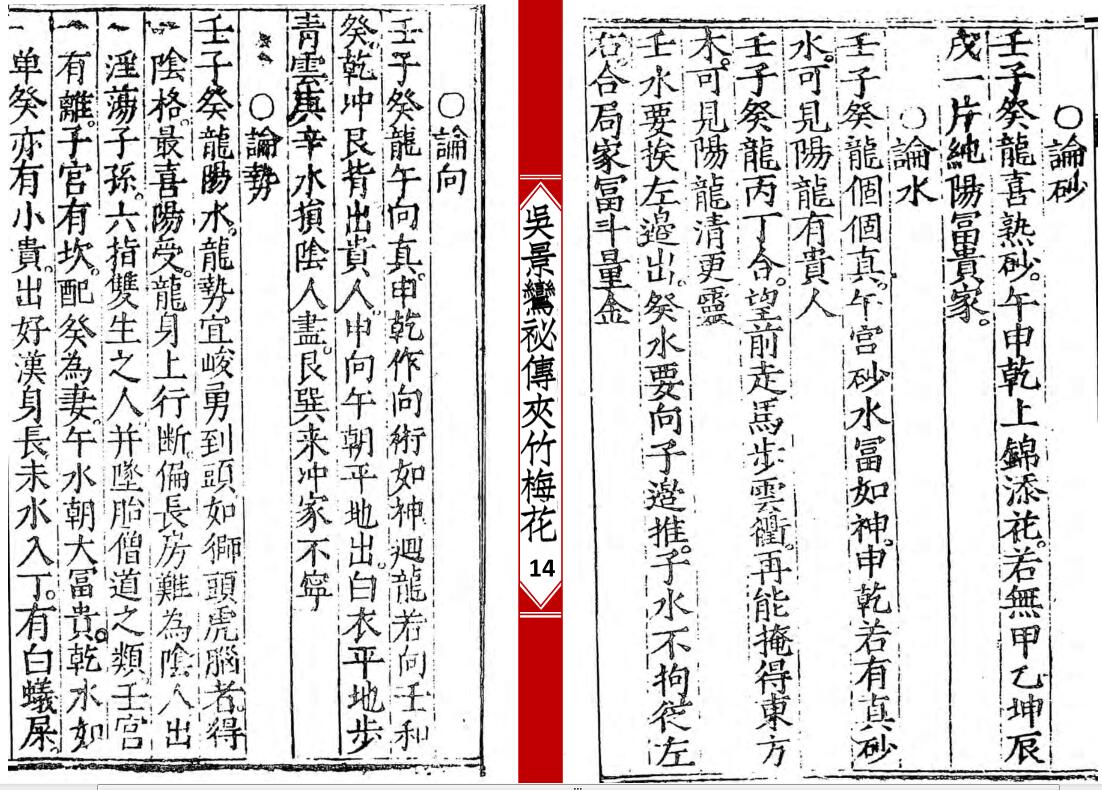 ○論砂
壬子癸龍喜熟砂。午申乾上錦添花。若無甲乙坤辰
戌一片純陽冨貴家。
○論水
壬子癸龍個個真。午宫砂水冨如神。申乾若有真砂
水。可見陽龍有貴人
壬子癸龍丙丁合。望前走馬步雲衢。再能掩得東方
木。可見陽龍清更靈
壬水要挨左邉出。癸水要向子邉推。子水不拘從左
右。合局家冨斗量金
吳景鸞祕傳夾竹梅花
14
○論向
壬子癸龍午向真。申乾作向術如神。廻龍若向壬和
癸。乾冲艮背出貴人。申向午朝平地出。白衣平地步
青雲。庚辛水損陰人盡。艮巽来冲家不寧
○論勢
壬子癸龍陽水。龍勢宜峻勇到頭如獅頭虎腦者。得
陰格。最喜陽受。龍身上行断。偏長房難為陰人出
一淫荡子孫。六指雙生之人并墜胎僧道之類壬宫
有離。子官有坎。配癸為妻。午水朝大冨貴。乾水如
一单癸亦有小貴。出好漢身長未水入丁。有白蟻屎